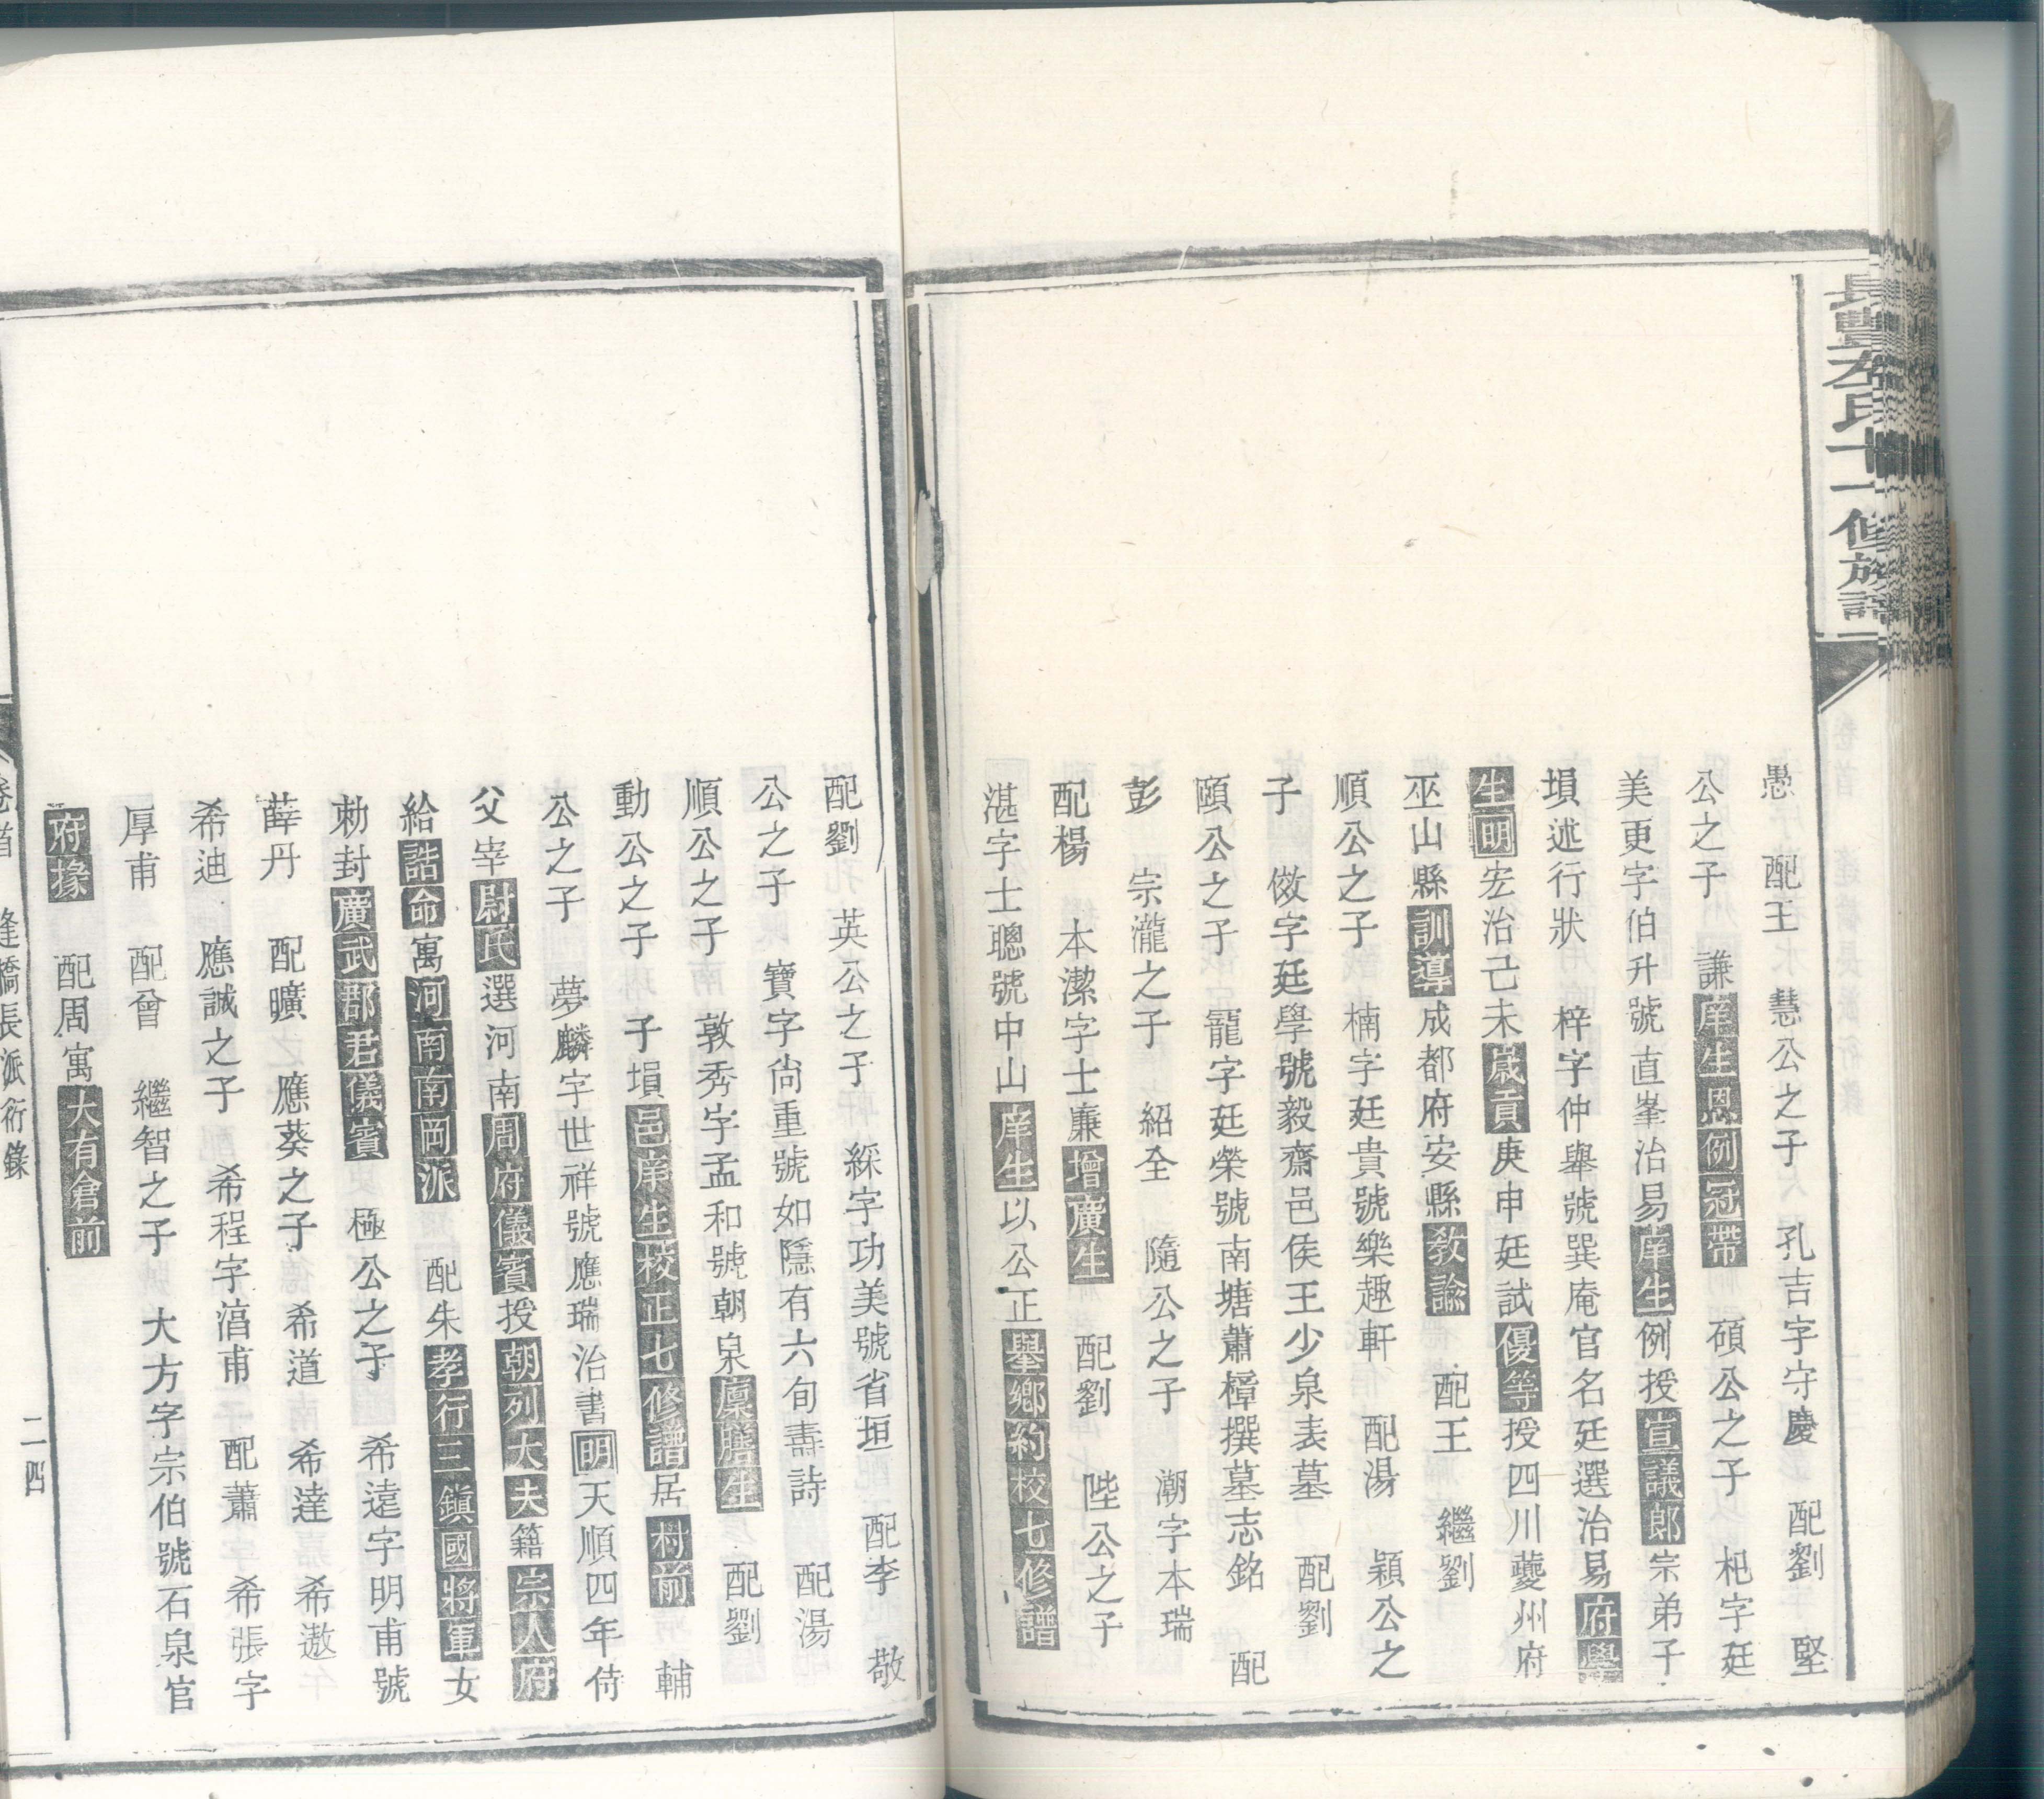 長豐左氏十一修族譜
愚 配王 慧公之子 孔吉字守慶 配劉 堅
公之子 謙庠生恩例冠帶 碩公之子 杞字廷
美更字伯升號直峯治易庠生例授宣議郎宗弟子
塤述行狀 梓字仲舉號巽庵官名廷選治易府學
生明宏治己未歲貢庚申廷試優等授四川夔州府
巫山縣訓導成都府安縣敎諭 配王 繼劉
順公之子 楠字廷貴號樂趣軒 配湯 穎公之
子 傚字廷學號毅齋邑侯王少泉表墓 配劉
頤公之子 寵字廷榮號南塘蕭樟撰墓志銘 配
彭 宗瀧之子 紹全 隨公之子 潮字本瑞
配楊 本潔字士廉增廣生 配劉 陛公之子
湛字士聰號中山庠生以公正舉鄉約校七修譜
配劉 英公之子 綵字功美號省垣 配李 敬
公之子 寶字尙重號如隱有六旬壽詩 配湯
順公之子 敦秀字孟和號朝泉廩膳生 配劉
動公之子 子塤邑庠生校正七修譜居村前 輔
公之子 夢麟字世祥號應瑞治書明天順四年侍
父宰尉氏選河南周府儀賓授朝列大夫籍宗人府
給誥命寓河南南岡派 配朱孝行三鎭國將軍女
勑封廣武郡君儀賓 極公之子 希遠字明甫號
薛丹 配曠 應葵之子 希道 希達 希遨
希迪 應誠之子 希程字淐甫 配蕭 希張字
厚甫 配曾 繼智之子 大方字宗伯號石泉官
府掾 配周寓大有倉前
卷首 逢橋長派衍錄 二四